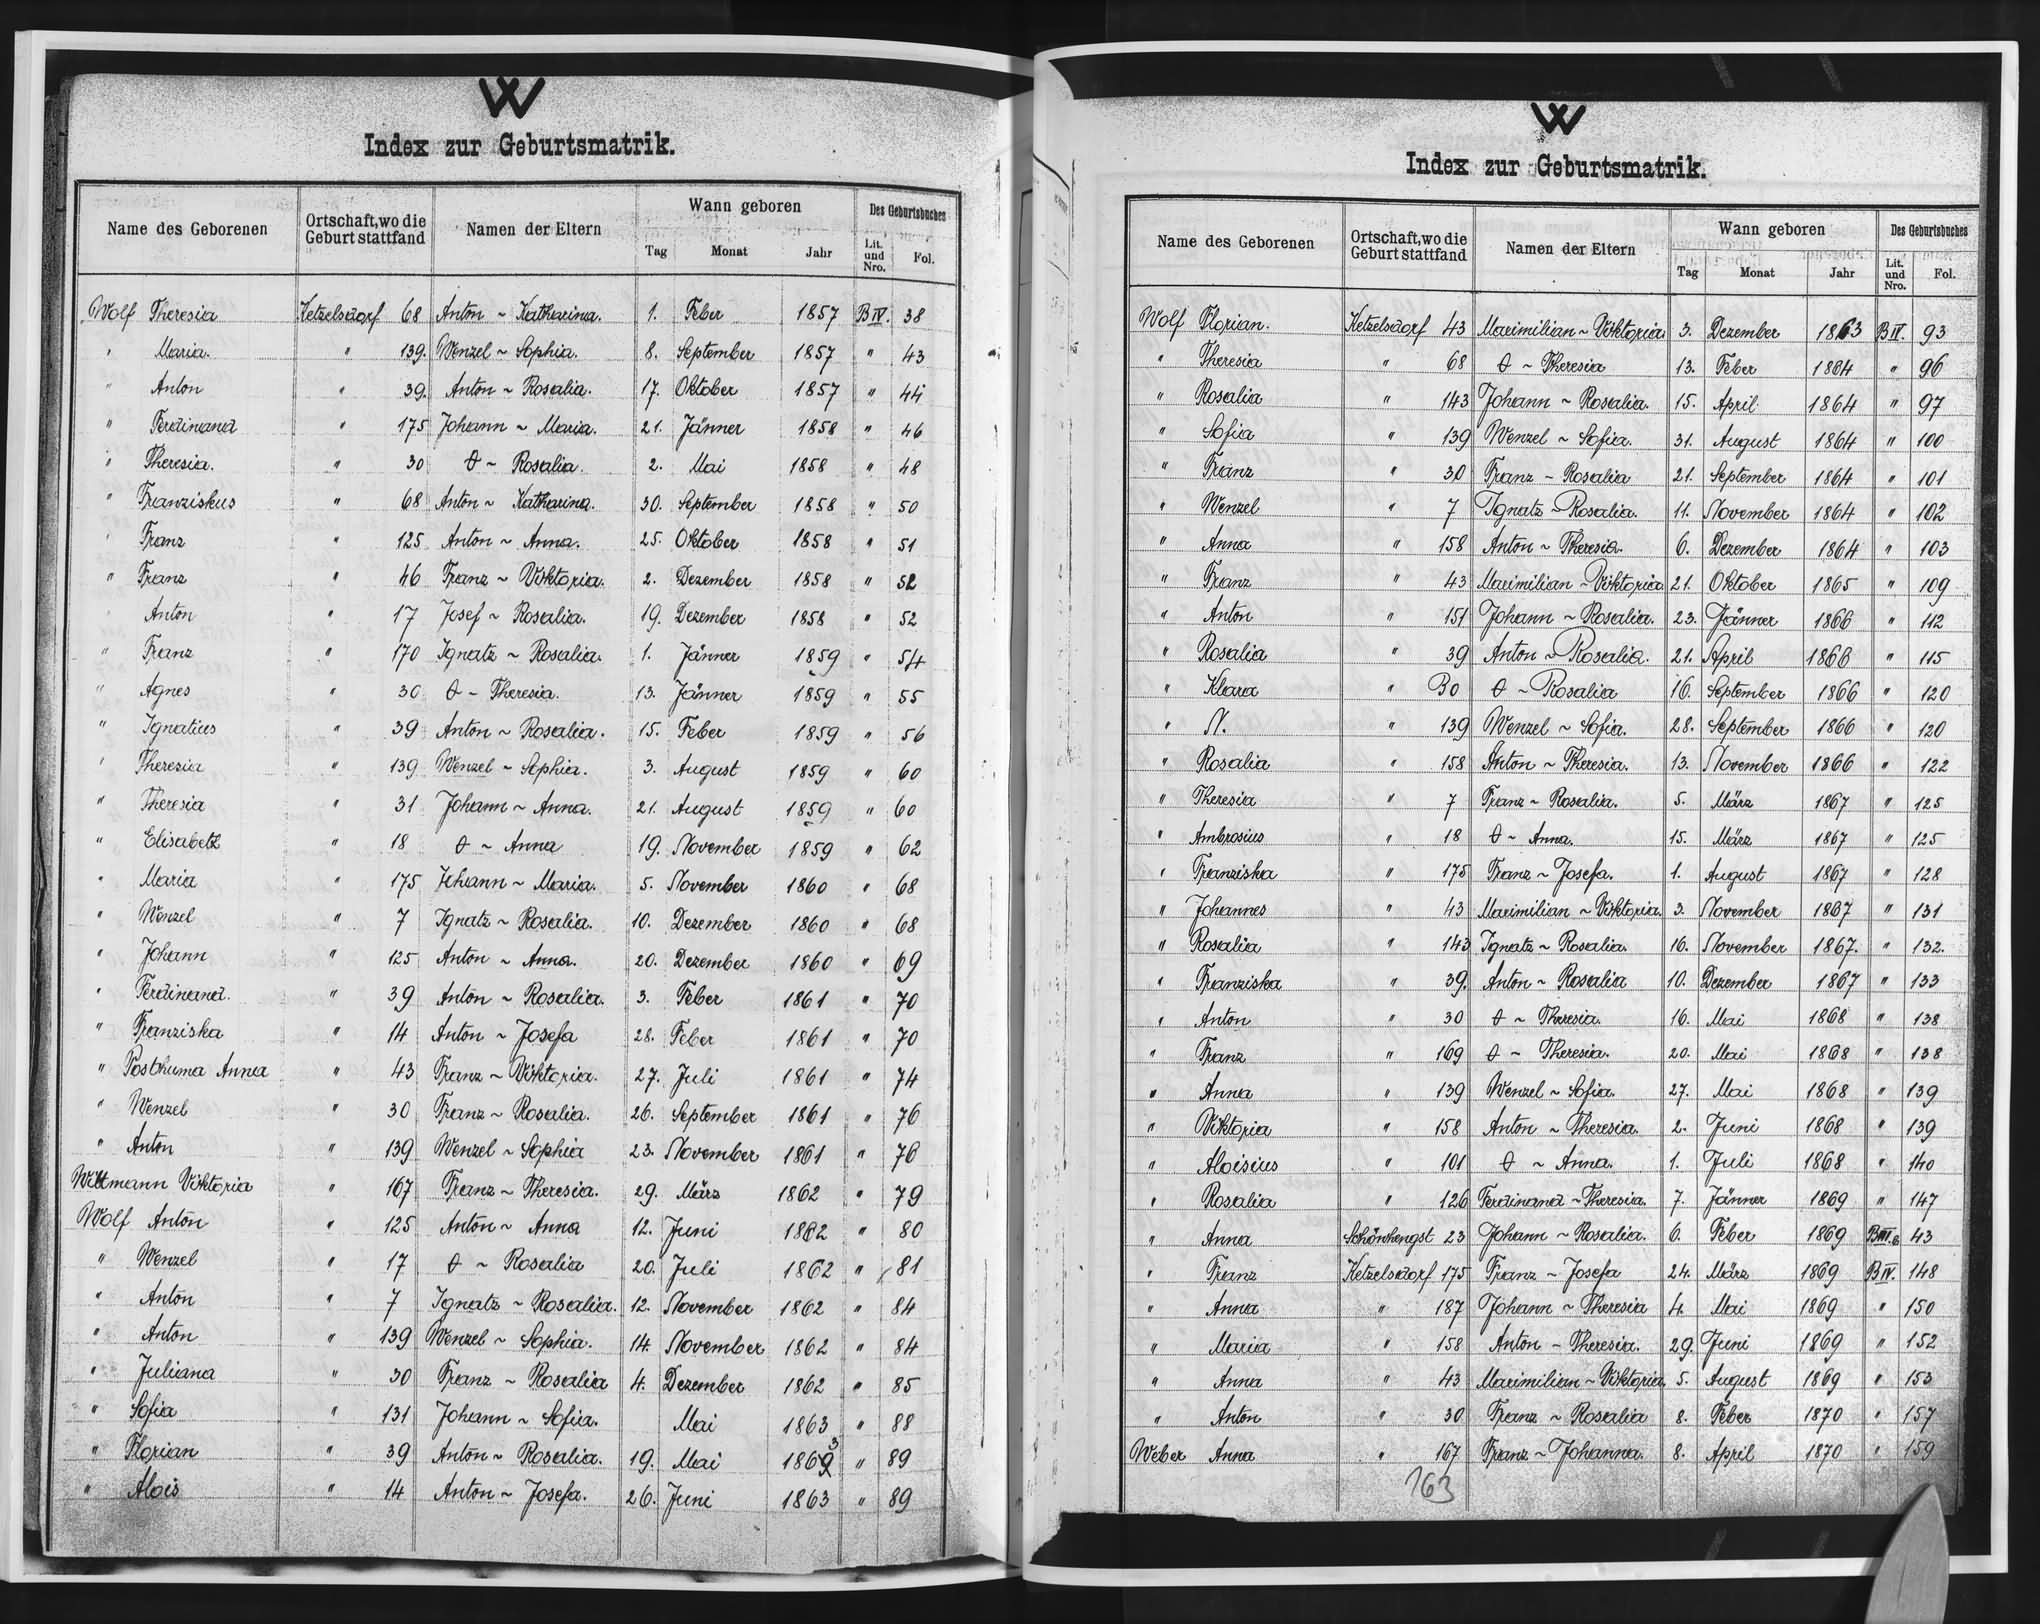 W
Index zur Geburtsmatrik.
Name des Geborenen | Ortschaft, wo die Geburt stattfand | Namen der Eltern | Wann geboren | Des Geburtsbuches
Tag | Monat | Jahr | Lit. und Nro. | Fol.
Wolf Theresia Ketzelsdorf 68 Anton ~ Katharina. 1. Feber 1857 B IV. 38
" Maria. " 139. Wenzel ~ Sophia. 8. September 1857 " 43
" Anton " 39. Anton ~ Rosalia. 17. Oktober 1857 " 44
" Ferdinand " 175 Johann ~ Maria. 21. Jänner 1858 " 46
" Theresia. " 30 O ~ Rosalia. 2. Mai 1858 " 48
" Franziskus " 68 Anton ~ Katharina. 30. September 1858 " 50
" Franz " 125 Anton ~ Anna. 25. Oktober 1858 " 51
" Franz " 46 Franz ~ Viktoria. 2. Dezember 1858 " 52
" Anton " 17 Josef ~ Rosalia. 19. Dezember 1858 " 52
" Franz " 170 Ignatz ~ Rosalia. 1. Jänner 1859 " 54
" Agnes " 30 O ~ Theresia. 13. Jänner 1859 " 55
" Ignatius " 39 Anton ~ Rosalia. 15. Feber 1859 " 56
" Theresia " 139 Wenzel ~ Sophia. 3. August 1859 " 60
" Theresia " 31 Johann ~ Anna. 21. August 1859 " 60
" Elisabeth " 18 O ~ Anna 19. November 1859 " 62
" Maria " 175 Johann ~ Maria. 5. November 1860 " 68
" Wenzel " 7 Ignatz ~ Rosalia. 10. Dezember 1860 " 68
" Johann " 125 Anton ~ Anna. 20. Dezember 1860 " 69
" Ferdinand. " 39 Anton ~ Rosalia. 3. Feber 1861 " 70
" Franziska " 14 Anton ~ Josefa 28. Feber 1861 " 70
" Posthuma Anna " 43 Franz ~ Viktoria. 27. Juli 1861 " 74
" Wenzel " 30 Franz ~ Rosalia. 26. September 1861 " 76
" Anton " 139 Wenzel ~ Sophia 23. November 1861 " 76
Wittmann Viktoria " 167 Franz ~ Theresia. 29. März 1862 " 79
Wolf Anton " 125 Anton ~ Anna 12. Juni 1862 " 80
" Wenzel " 17 O ~ Rosalia 20. Juli 1862 " 81
" Anton " 7 Ignatz ~ Rosalia. 12. November 1862 " 84
" Anton " 139 Wenzel ~ Sophia. 14. November 1862 " 84
" Juliana " 30 Franz ~ Rosalia 4. Dezember 1862 " 85
" Sofia " 131 Johann ~ Sofia. Mai 1863 " 88
" Florian " 39 Anton ~ Rosalia. 19. Mai 1863 " 89
" Alois " 14 Anton ~ Josefa. 26. Juni 1863 " 89
W
Index zur Geburtsmatrik.
Name des Geborenen | Ortschaft, wo die Geburt stattfand | Namen der Eltern | Wann geboren | Des Geburtsbuches
Tag | Monat | Jahr | Lit. und Nro. | Fol.
Wolf Florian. Ketzelsdorf 43 Maximilian ~ Viktoria 3. Dezember 1863 B IV. 93
" Theresia " 68 O ~ Theresia 13. Feber 1864 " 96
" Rosalia " 143 Johann ~ Rosalia. 15. April 1864 " 97
" Sofia " 139 Wenzel ~ Sofia. 31. August 1864 " 100
" Franz " 30 Franz ~ Rosalia 21. September 1864 " 101
" Wenzel " 7 Ignatz ~ Rosalia. 11. November 1864 " 102
" Anna " 158 Anton ~ Theresia. 6. Dezember 1864 " 103
" Franz " 43 Maximilian ~ Viktoria 21. Oktober 1865 " 109
" Anton " 151 Johann ~ Rosalia. 23. Jänner 1866 " 112
" Rosalia " 39 Anton ~ Rosalia. 21. April 1866 " 115
" Klara " 30 O ~ Rosalia 16. September 1866 " 120
" N. " 139 Wenzel ~ Sofia. 28. September 1866 " 120
" Rosalia " 158 Anton ~ Theresia. 13. November 1866 " 122
" Theresia " 7 Franz ~ Rosalia. 5. März 1867 " 125
" Ambrosius " 18 O ~ Anna. 15. März 1867 " 125
" Franziska " 175 Franz ~ Josefa. 1. August 1867 " 128
" Johannes " 43 Maximilian ~ Viktoria. 3. November 1867 " 131
" Rosalia " 143 Ignatz ~ Rosalia. 16. November 1867. " 132.
" Franziska " 39. Anton ~ Rosalia 10. Dezember 1867 " 133
" Anton " 30 O ~ Theresia. 16. Mai 1868 " 138
" Franz " 169 O ~ Theresia. 20. Mai 1868 " 138
" Anna " 139 Wenzel ~ Sofia. 27. Mai 1868 " 139
" Viktoria " 158 Anton ~ Theresia. 2. Juni 1868 " 139
" Aloisius " 101 O ~ Anna. 1. Juli 1868 " 140
" Rosalia " 126 Ferdinand ~ Theresia. 7. Jänner 1869 " 147
" Anna Schönhengst 23 Johann ~ Rosalia. 6. Feber 1869 B III. 6 43
" Franz Ketzelsdorf 175 Franz ~ Josefa 24. März 1869 B IV. 148
" Anna " 187 Johann ~ Theresia 4. Mai 1869 " 150
" Maria " 158 Anton ~ Theresia. 29. Juni 1869 " 152
" Anna " 43 Maximilian ~ Viktoria. 5. August 1869 " 153
" Anton " 30 Franz ~ Rosalia 8. Feber 1870 " 157
Weber Anna " 167 Franz ~ Johanna. 8. April 1870 " 159
163